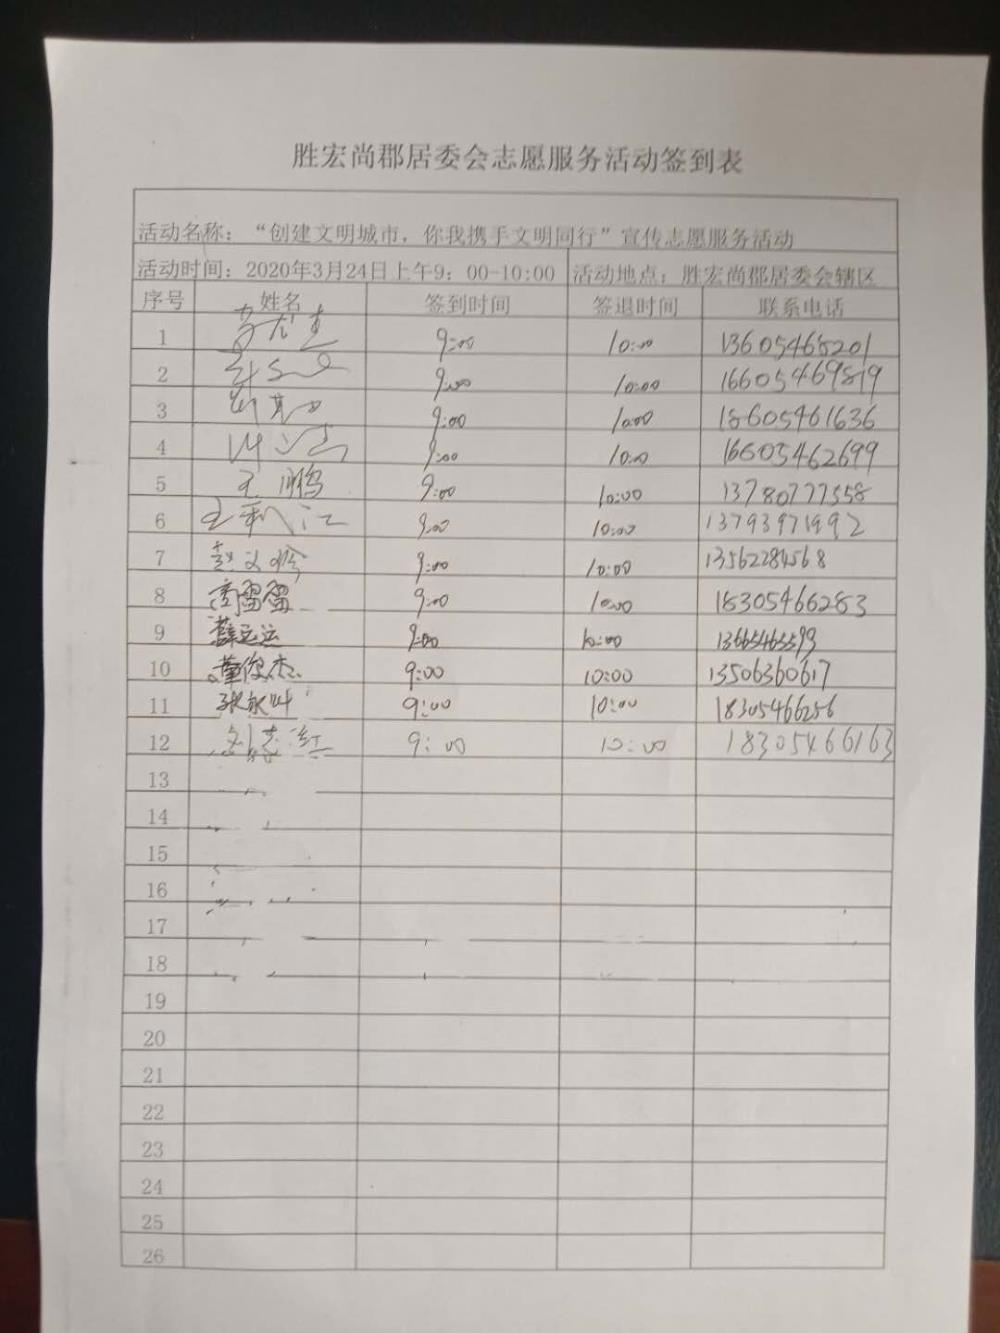 胜宏尚郡居委会志愿服务活动签到表
活动名称：“创建文明城市，你我携手文明同行”宣传志愿服务活动
活动时间：2020年3月24日上午9：00-10:00 活动地点：胜宏尚郡居委会辖区
序号 姓名 签到时间 签退时间 联系电话
1 9:00 10:00 13605468201
2 9:00 10:00 16605469819
3 9:00 10:00 18605461636
4 9:00 10:00 16605462699
5 王鹏 9:00 10:00 13780777558
6 王利江 9:00 10:00 13793971992
7 9:00 10:00 13562284568
8 高雷雷 9:00 10:00 18305466283
9 薛运法 9:00 10:00
10 董俊杰 9:00 10:00 13506360617
11 张永叶 9:00 10:00 18305466256
12 刘志红 9:00 10:00 18305466163
13
14
15
16
17
18
19
20
21
22
23
24
25
26